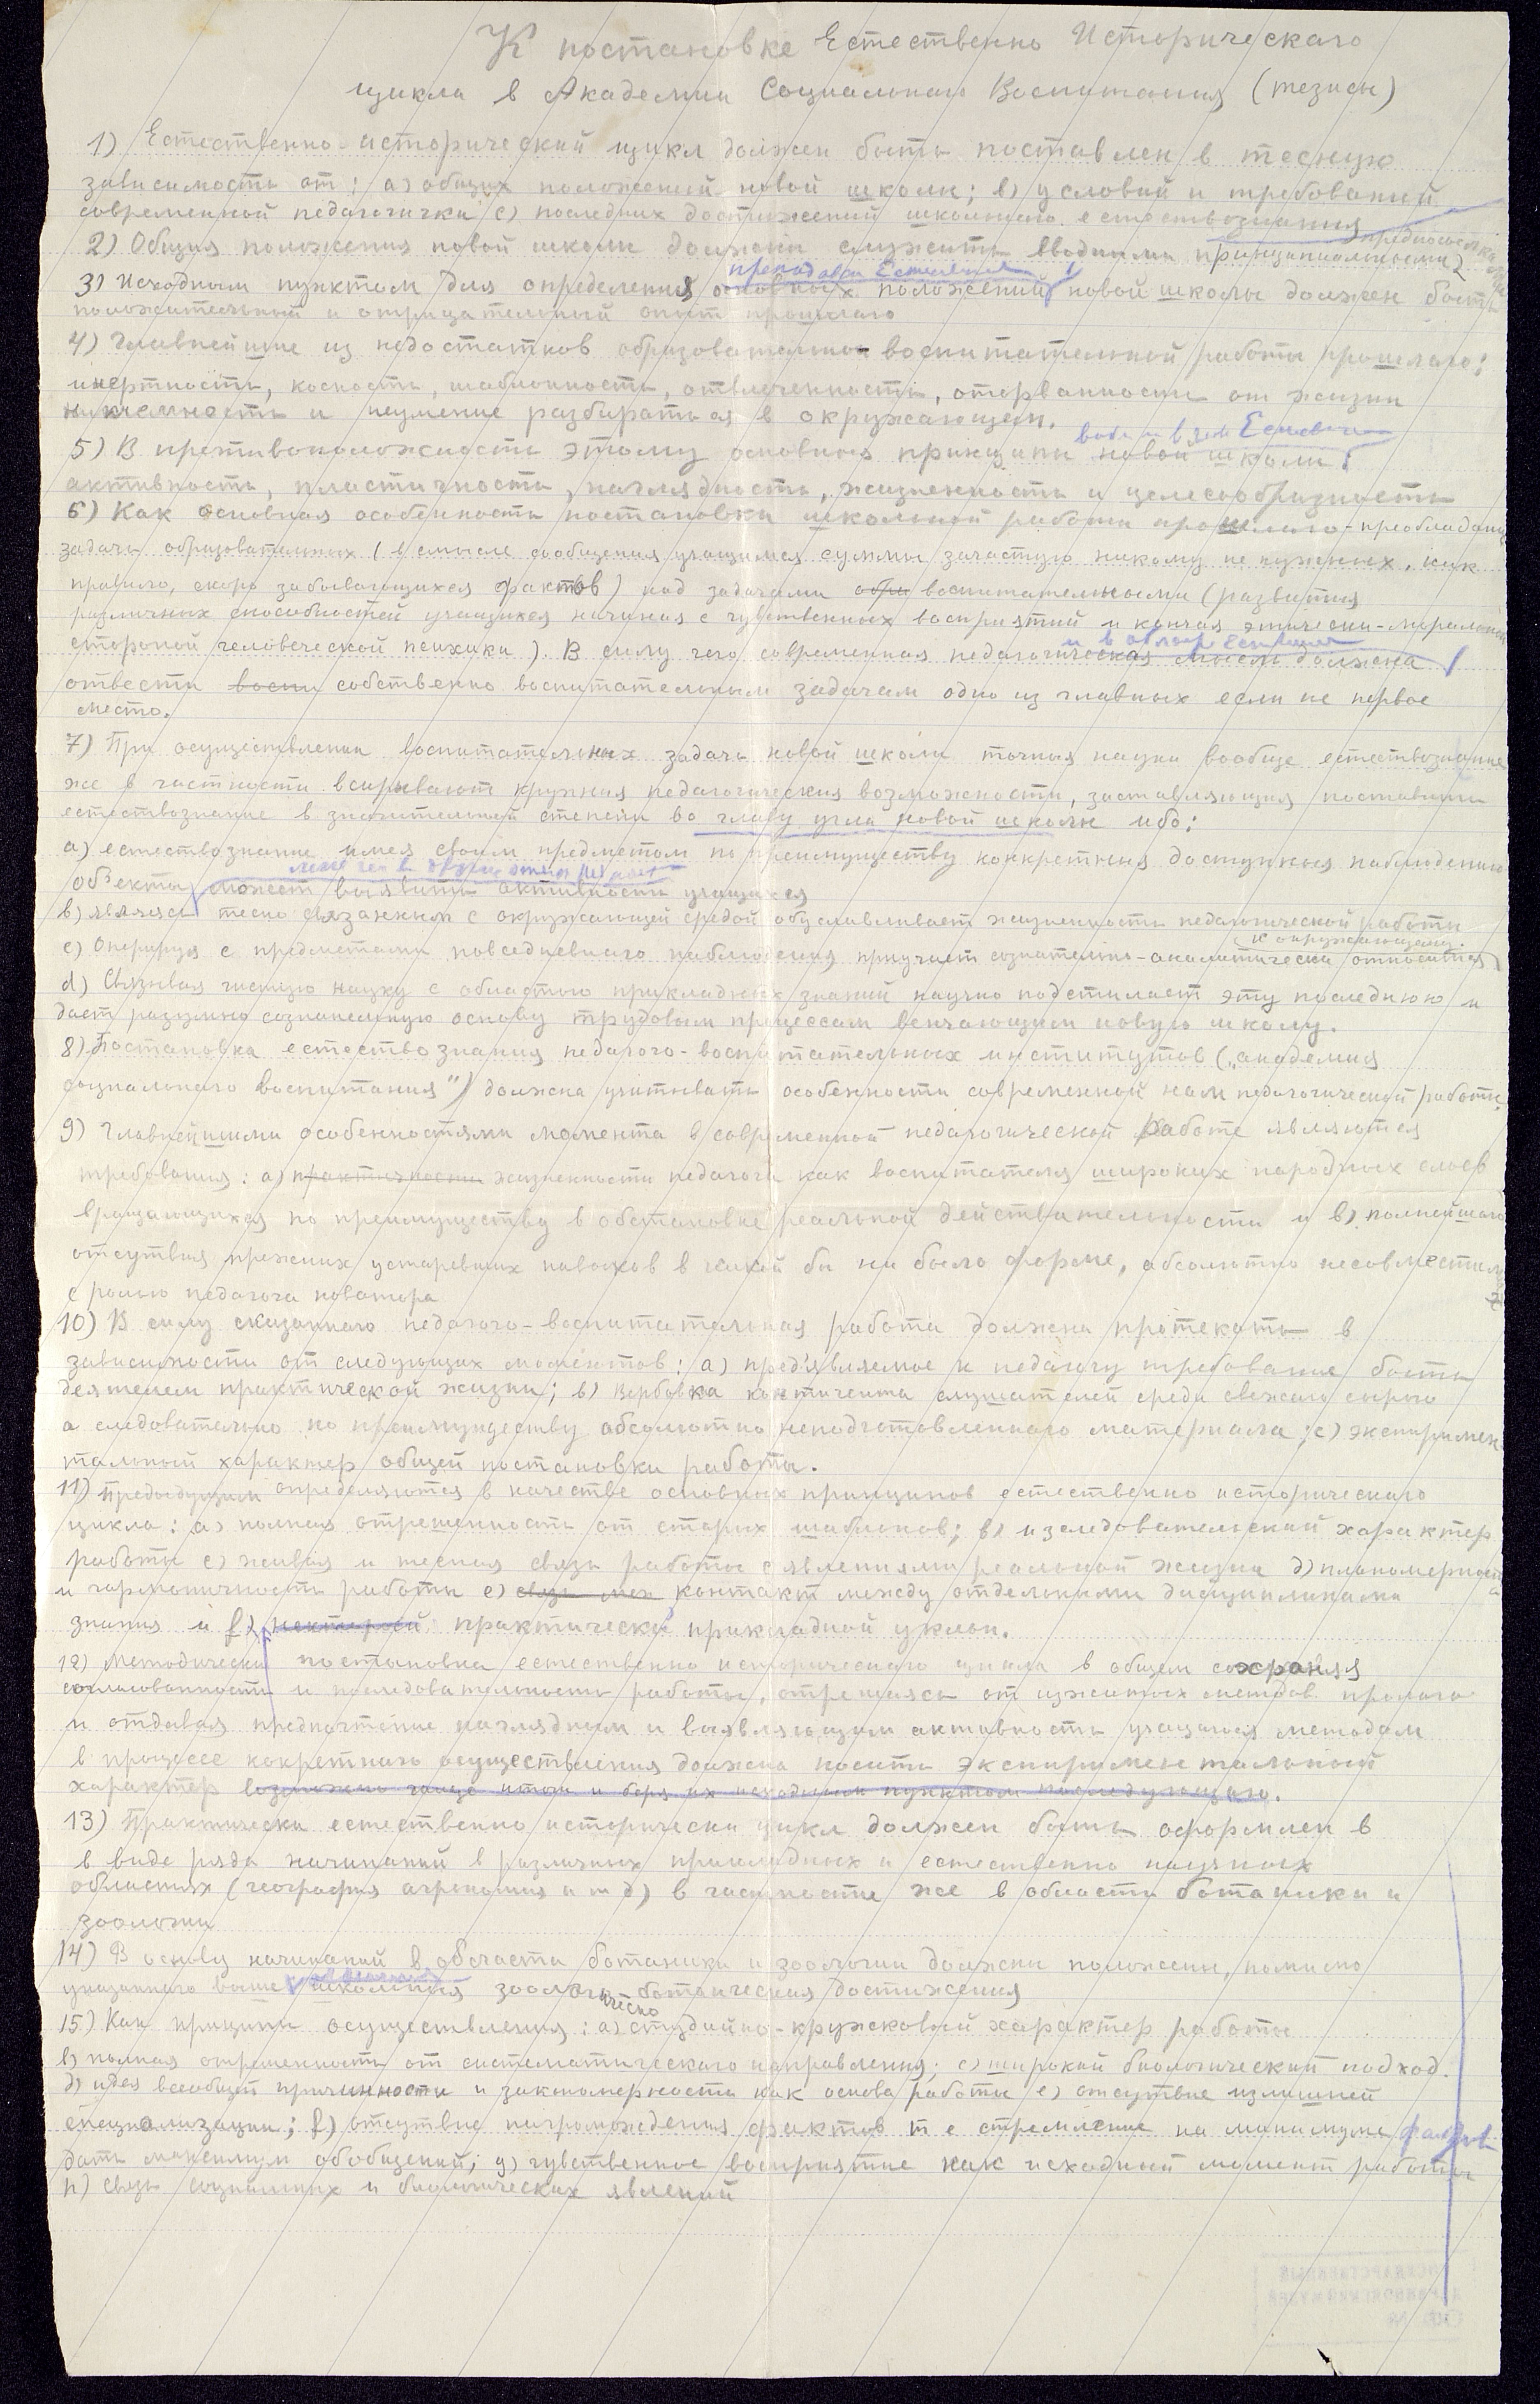 К постановке Естественно Исторического
цикла в Академии Социального Воспитания (тезисы)
1) Естественно-исторический цикл должен быть поставлен в тесную
зависимость от: а) общих положений новой школы; в) условий и требований
современной педагогички с) последних достижений школьного естествознания
2) Общия положения новой школы должны служить вводными принципиальными
преподован Естествозн
3) Исходным пунктом для определения основных положений новой школы должен быть
положительный и отрицательный опыт прошлаго
4) Главнейшие из недостатков образовательно-воспитательной работы прошлаго:
инертность, косность, шаблонность, отвлеченность, оторванность от жизни
никчемность и неумение разбираться в окружающем.
5) В противоположность этому основныя принципы новой школы:
активность, пластичность, наглядность, жизненность и целесообразность
6) Как основная особенность постановки школьной работы прошлаго - преобладание
задачь образовательных (в смысле сообщения учащимся суммы зачастую никому не нужных, как
правило, скоро забывающихся фактов) над задачами обра воспитательными (развития
различных способностей учащихся начиная с чувственных восприятий и кончая этически-моральной
стороной человеческой психики). В силу чего современная педагогическая мысль должна
отвести воспи собственно воспитательным задачам одно из главных если не первое
место.
7) При осуществлении воспитательных задачь новой школы точныя науки вообще естествознание
же в частности вскрывают крупныя педагогическия возможности, заставляющия поставить
естествознание в значительной степени во главу угла новой школы ибо:
а) естествознание имея своим предметом по преимуществу конкретныя доступныя наблюдению
объекты может выявить активность учащихся
в) являясь тесно связанным с окружающей средой обуславливает жизненность педагогической работы
к окружающему.
с) Оперируя с предметами повседневнаго наблюдения приучает сознательно-аналитически относиться
d) Связывая чистую науку с областью прикладных знаний научно подстилает эту последнюю и
дает разумно сознательную основу трудовым процессам венчающим новую школу.
8) Постановка естествознания педагого-воспитательных институтов („академия
социальнаго воспитания") должна учитывать особенности современной нам педагогической работы.
9) Главнейшими особенностями момента в современной педагогической работе являются
требования: а) практичности жизненности педагога как воспитателя широких народных слоев
вращающихся по преимуществу в обстановке реальной действительности и в) полнейшаго
отсутвия прежних устаревших навыков в какой бы ни было форме, абсолютно несовместимых
с ролью педагога новатора
10) В силу сказаннаго педагого-воспитательная работа должна протекать в
зависимости от следующих моментов: а) предъявляемое к педагогу требование быть
деятелем практической жизни; в) Вербовка контингента слушателей среди свежаго сырого
а следовательно по преимуществу абсолютно неподготовленнаго материала; с) эксперимен-
тальный характер общей постановки работы.
11) Предыдущим определяются в качестве основных принципов естественно историческаго
цикла: а) полная отрешенность от старых шаблонов; в) изследовательский характер
работы с) живая и тесная связь работы с явлениями реальной жизни d) планомерность
и гармоничность работы е) связь меж контакт между отдельными дисциплинами
знания и f) практически прикладной уклон.
12) Методически постановка естественно историческаго цикла в общем сохраняя
согласованность и последовательность работы, отрешаясь от изжитых методов прошлаго
и отдавая предпочтение наглядным и выявляющим активность учащихся методам
в процессе конкретнаго осуществления должна носить экспериментальный
характер возможно чаще итоги и беря их исходным пунктом последующаго.
13) Практически естественно исторически цикл должен быть оформлен в
в виде ряда начинаний в различных прикладных и естественно научных
областях (география агрономия и т д) в частности же в области ботаники и
зоологии
14) В основу начинаний в области ботаники и зоологии должны положены, помимо
указаннаго выше школьныя зоолого-ботаническия достижения
15) Как принципы осуществления: а) студийно-кружковый характер работы
в) полная отрешенность от систематическаго направления; с) широкий биологический подход.
d) идея всеобщей причинности и закономерности как основа работы е) отсутвие излишней
специализации; f) отсутвие нагромождения фактов т е стремление на минимуме фактов
дать максимум обобщений; g) чувственное восприятие как исходный момент работы
h) связь социальных и биологических явлений